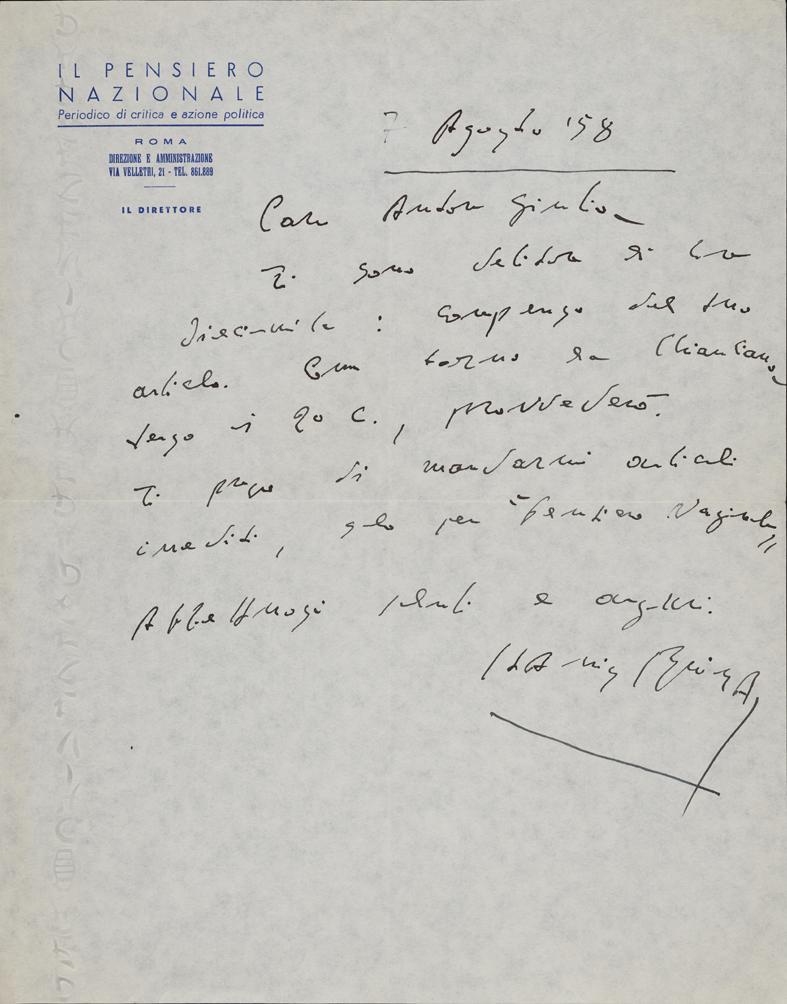 IL PENSIERO
NAZIONALE
Periodico di critica e azione politica
ROMA
DIREZIONE E AMMINISTRAZIONE
VIA VELLETRI, 21 - TEL. 861.889
IL DIRETTORE
7 Agosto '58
Caro Anton Giulio,
Ti sono debitore di lire
diecimila: compenso del tuo
articolo. Come torno da Chianciano,
verso il 20 c., provvederò.
Ti prego di mandarmi articoli
inediti, solo per "Pensiero Nazionale"
Affettuosi saluti e auguri.